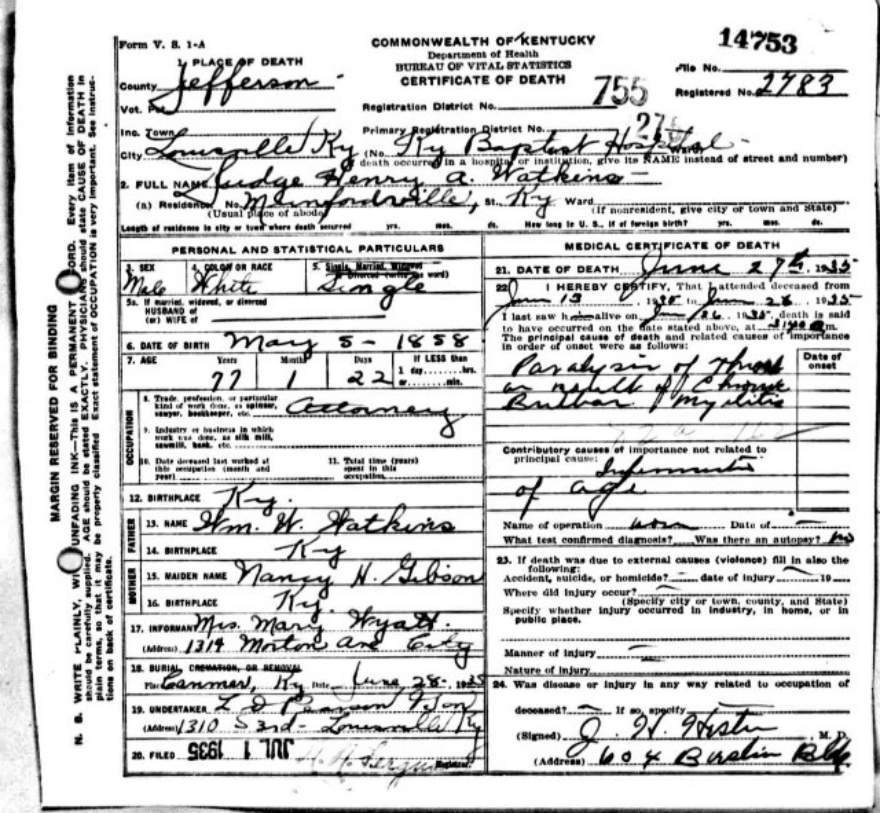 Form V. S. 1-A
COMMONWEALTH OF KENTUCKY
Department of Health
BUREAU OF VITAL STATISTICS
CERTIFICATE OF DEATH
14753
File No.
Registered No. 2783
1. PLACE OF DEATH
County Jefferson
Vot. Pct.
Registration District No. 755
Inc. Town
Primary Registration District No.
City Louisville Ky (No. Ky Baptist Hospital Ward)
death occurred in a hospital or institution, give its NAME instead of street and number)
2. FULL NAME Judge Henry A. Watkins
(a) Residence No. Munfordville, St. Ky Ward
(Usual place of abode) (If nonresident, give city or town and State)
Length of residence in city or town where death occurred yrs. mos. ds. How long in U. S., if of foreign birth? yrs. mos. ds.
PERSONAL AND STATISTICAL PARTICULARS
3. SEX Male
4. COLOR OR RACE White
5. Single, Married, Widowed or Divorced (write the word) Single
5a. If married, widowed, or divorced
HUSBAND of
(or) WIFE of
6. DATE OF BIRTH May 5 - 1858
7. AGE Years Months Days If LESS than
77 1 22 1 day hrs. or min.
OCCUPATION
8. Trade, profession, or particular
kind of work done, as spinner,
sawyer, bookkeeper, etc. Attorney
9. Industry or business in which
work was done, as silk mill,
sawmill, bank, etc.
10. Date deceased last worked at
this occupation (month and
year)
11. Total time (years)
spent in this
occupation
12. BIRTHPLACE Ky.
FATHER
13. NAME Wm. W. Watkins
14. BIRTHPLACE Ky
MOTHER
15. MAIDEN NAME Nancy H. Gibson
16. BIRTHPLACE Ky.
17. INFORMANT Mrs. Mary Wyatt.
(Address) 1314 Morton Ave City
18. BURIAL, CREMATION, OR REMOVAL
Place Canmer, Ky Date June 28 - 1935
19. UNDERTAKER L. D. Pearson & Son
(Address) 1310 S 3rd - Louisville Ky
20. FILED JUL 1 1935 Registrar.
MEDICAL CERTIFICATE OF DEATH
21. DATE OF DEATH June 27th, 1935
22. I HEREBY CERTIFY, That I attended deceased from
June 13, 1935 to June 26, 1935
I last saw him alive on June 26 1935, death is said
to have occurred on the date stated above, at m.
The principal cause of death and related causes of importance
in order of onset were as follows: Date of onset
Paralysis of Throat
as result of Chronic
Bulbar Myelitis
Contributory causes of importance not related to
principal cause: Infirmities
of age
Name of operation none Date of
What test confirmed diagnosis? Was there an autopsy? No
23. If death was due to external causes (violence) fill in also the
following:
Accident, suicide, or homicide? date of injury 19
Where did injury occur?
(Specify city or town, county, and State)
Specify whether injury occurred in industry, in home, or in
public place.
Manner of injury
Nature of injury
24. Was disease or injury in any way related to occupation of
deceased? If so, specify
(Signed) J. H. Hester M. D.
(Address) 604 Bldg
MARGIN RESERVED FOR BINDING
N. B. WRITE PLAINLY, WITH UNFADING INK—THIS IS A PERMANENT RECORD. Every item of information
should be carefully supplied. AGE should be stated EXACTLY. PHYSICIANS should state CAUSE OF DEATH in
plain terms, so that it may be properly classified. Exact statement of OCCUPATION is very important. See instruc-
tions on back of certificate.